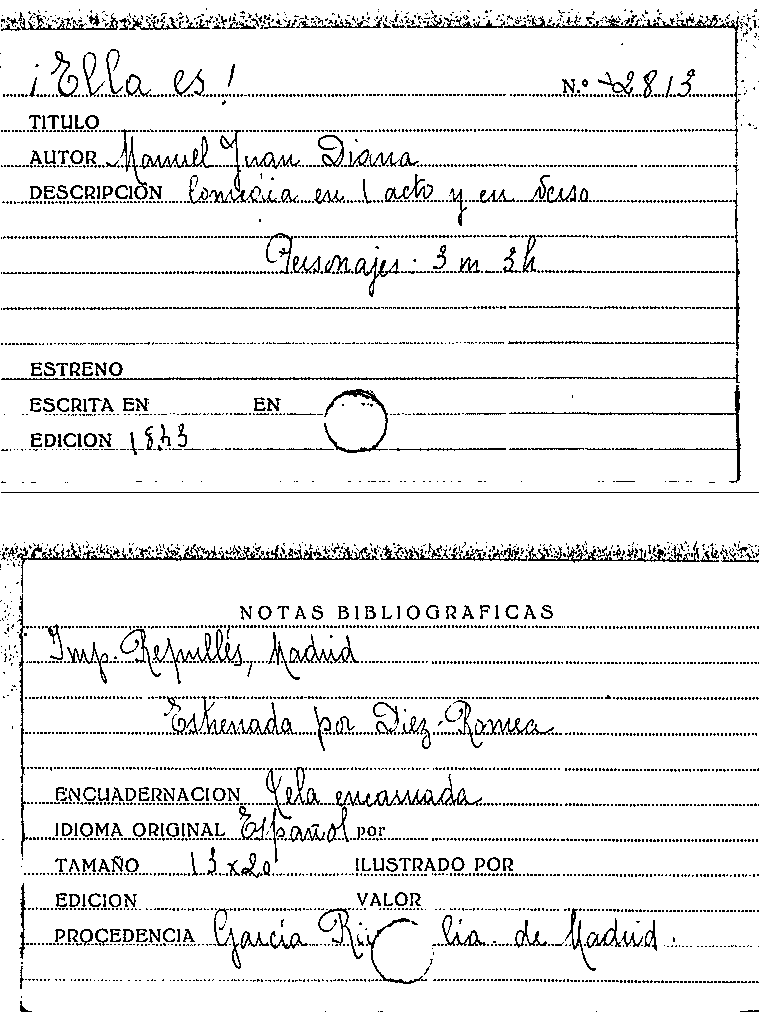 ¡Ella es!
N.º 2813
TITULO
AUTOR Manuel Juan Diana
DESCRIPCIÓN Comedia en 1 acto y en verso
Personajes: 3 m 3h
ESTRENO
ESCRITA EN EN
EDICION 1843
NOTAS BIBLIOGRAFICAS
Imp. Repullés, Madrid
Estrenada por Diez-Romea
ENCUADERNACION Tela encarnada
IDIOMA ORIGINAL Español por
TAMAÑO 13x20 ILUSTRADO POR
EDICION VALOR
PROCEDENCIA García de Madrid.